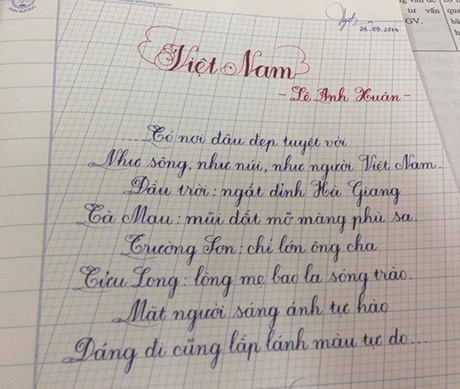 26.09.2014
tư vấn
GV.
Việt Nam
- Lê Anh Xuân -
....Có nơi đâu đẹp tuyệt vời
Như sông, như núi, như người Việt Nam.
Đầu trời: ngất đỉnh Hà Giang
Cà Mau: mũi đất mỡ màng phù sa.
Trường Sơn: chí lớn ông cha
Cửu Long: lòng mẹ bao la sóng trào.
Mặt người sáng ánh tự hào
Dáng đi cũng lấp lánh màu tự do...